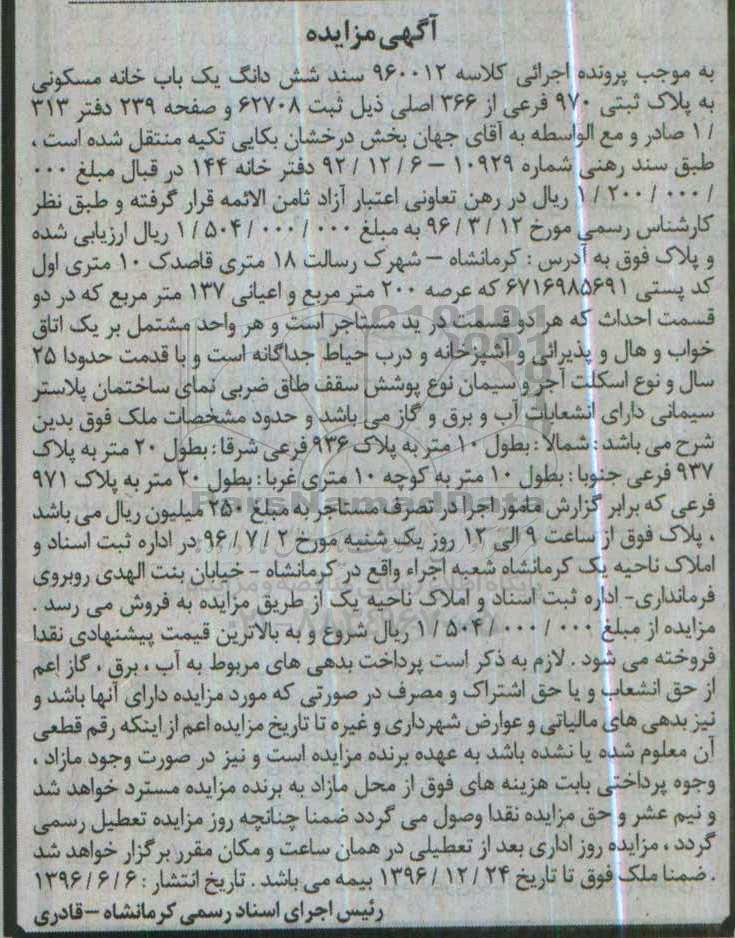 آگهی مزایده
به موجب پرونده اجرائی کلاسه ۹۶۰۰۱۲ سند شش دانگ یک باب خانه مسکونی
به پلاک ثبتی ۹۷۰ فرعی از ۳۶۶ اصلی ذیل ثبت ۶۲۷۰۸ و صفحه ۲۳۹ دفتر ۳۱۳
/ ۱ صادر و مع الواسطه به آقای جهان بخش درخشان بکایی تکیه منتقل شده است ،
طبق سند رهنی شماره ۱۰۹۲۹ – ۶ / ۱۲ / ۹۲ دفتر خانه ۱۴۴ در قبال مبلغ ۰۰۰
/ ۰۰۰ / ۲۰۰ / ۱ ریال در رهن تعاونی اعتبار آزاد ثامن الائمه قرار گرفته و طبق نظر
کارشناس رسمی مورخ ۱۲ / ۳ / ۹۶ به مبلغ ۰۰۰ / ۰۰۰ / ۵۰۴ / ۱ ریال ارزیابی شده
و پلاک فوق به آدرس : کرمانشاه – شهرک رسالت ۱۸ متری قاصدک ۱۰ متری اول
کد پستی ۶۷۱۶۹۸۵۶۹۱ که عرصه ۲۰۰ متر مربع و اعیانی ۱۳۷ متر مربع که در دو
قسمت احداث که هر دو قسمت در ید مستاجر است و هر واحد مشتمل بر یک اتاق
خواب و هال و پذیرائی و آشپزخانه و درب حیاط جداگانه است و با قدمت حدودا ۲۵
سال و نوع اسکلت آجر و سیمان نوع پوشش سقف طاق ضربی نمای ساختمان پلاستر
سیمانی دارای انشعابات آب و برق و گاز می باشد و حدود مشخصات ملک فوق بدین
شرح می باشد : شمالا : بطول ۱۰ متر به پلاک ۹۳۶ فرعی شرقا : بطول ۲۰ متر به پلاک
۹۳۷ فرعی جنوبا : بطول ۱۰ متر به کوچه ۱۰ متری غربا : بطول ۲۰ متر به پلاک ۹۷۱
فرعی که برابر گزارش مامور اجرا در تصرف مستاجر به مبلغ ۲۵۰ میلیون ریال می باشد
، پلاک فوق از ساعت ۹ الی ۱۲ روز یک شنبه مورخ ۲ / ۷ / ۹۶ در اداره ثبت اسناد و
املاک ناحیه یک کرمانشاه شعبه اجراء واقع در کرمانشاه - خیابان بنت الهدی روبروی
فرمانداری- اداره ثبت اسناد و املاک ناحیه یک از طریق مزایده به فروش می رسد .
مزایده از مبلغ ۰۰۰ / ۰۰۰ / ۵۰۴ / ۱ ریال شروع و به بالاترین قیمت پیشنهادی نقدا
فروخته می شود . لازم به ذکر است پرداخت بدهی های مربوط به آب ، برق ، گاز اعم
از حق انشعاب و یا حق اشتراک و مصرف در صورتی که مورد مزایده دارای آنها باشد و
نیز بدهی های مالیاتی و عوارض شهرداری و غیره تا تاریخ مزایده اعم از اینکه رقم قطعی
آن معلوم شده یا نشده باشد به عهده برنده مزایده است و نیز در صورت وجود مازاد ،
وجوه پرداختی بابت هزینه های فوق از محل مازاد به برنده مزایده مسترد خواهد شد
و نیم عشر و حق مزایده نقدا وصول می گردد ضمنا چنانچه روز مزایده تعطیل رسمی
گردد ، مزایده روز اداری بعد از تعطیلی در همان ساعت و مکان مقرر برگزار خواهد شد
. ضمنا ملک فوق تا تاریخ ۲۴ / ۱۲ / ۱۳۹۶ بیمه می باشد . تاریخ انتشار : ۶ / ۶ / ۱۳۹۶
رئیس اجرای اسناد رسمی کرمانشاه –قادری
ParsNamadData